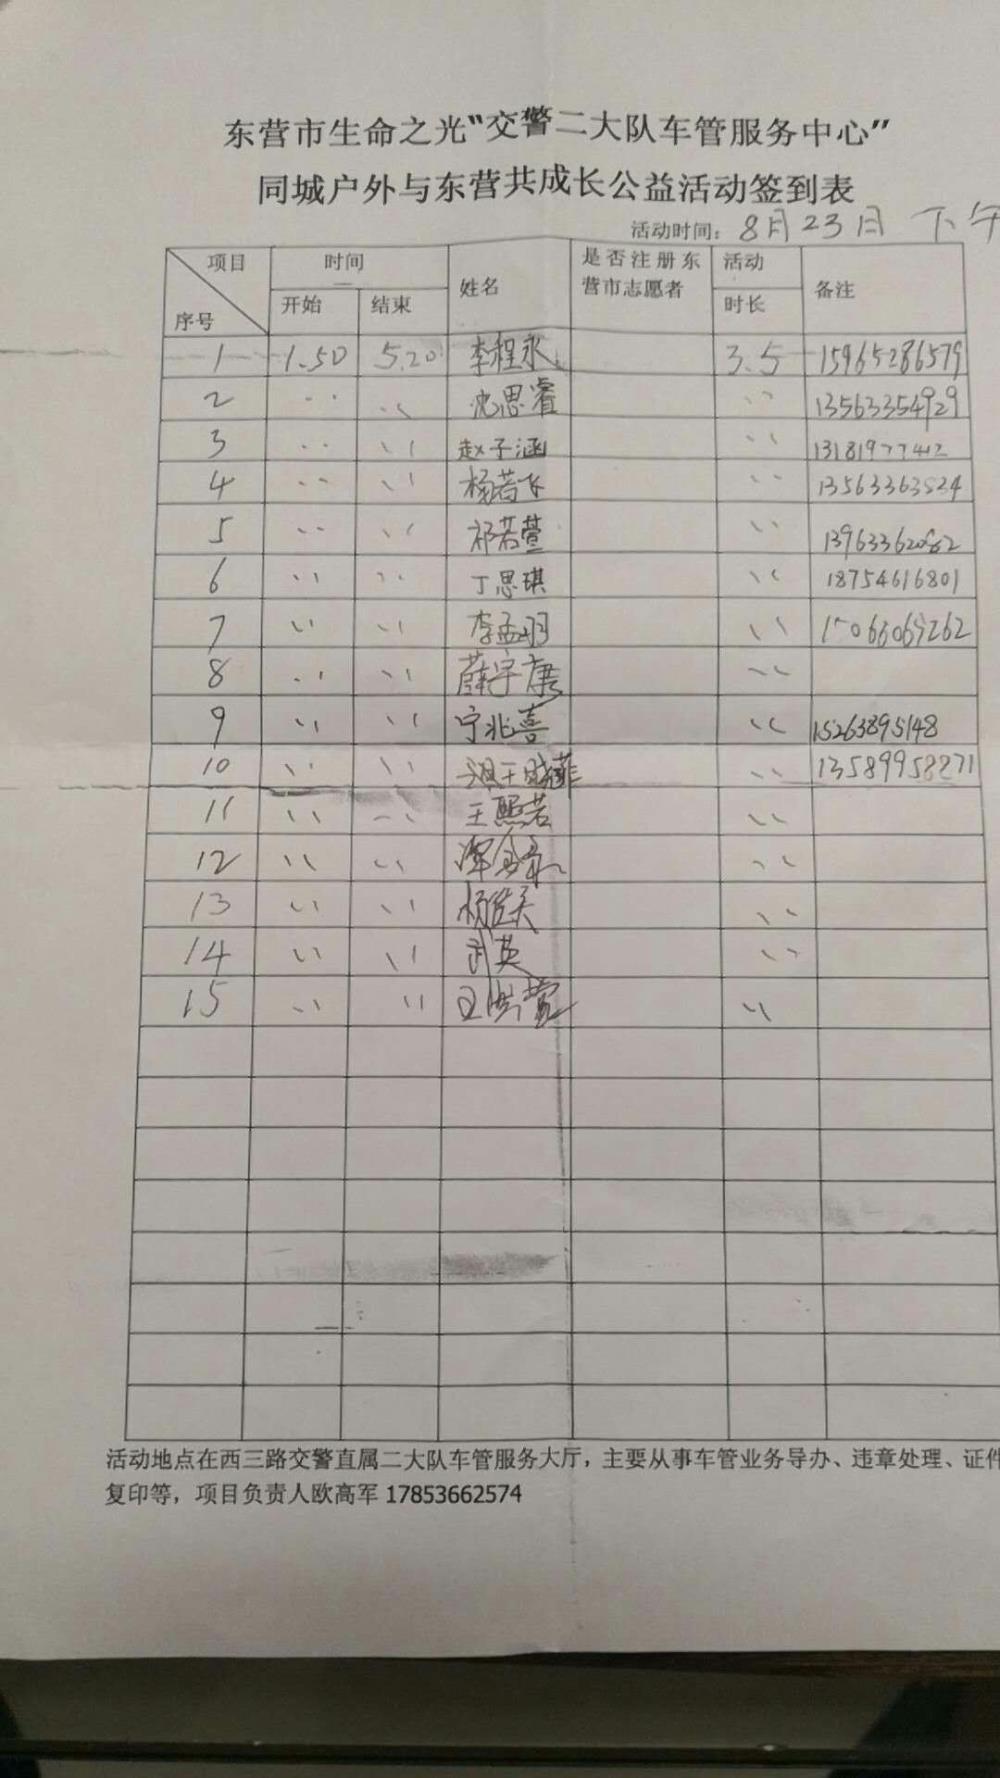 东营市生命之光“交警二大队车管服务中心”
同城户外与东营共成长公益活动签到表
活动时间：8月23日 下午
项目 时间 姓名 是否注册东营市志愿者 活动 备注
序号 开始 结束 时长
1 1.50 5.20 李程永 3.5 15965286579
2 〃 〃 沈思睿 〃 13563354929
3 〃 〃 赵子涵 〃 13181977412
4 〃 〃 杨若飞 〃 13563363524
5 〃 〃 祁若萱 〃
6 〃 〃 丁思琪 〃 18754616801
7 〃 〃 李孟羽 〃 15066069262
8 〃 〃 薛宇康 〃
9 〃 〃 宁兆喜 〃 15263895148
10 〃 〃 〃 13589958271
11 〃 〃 王熙若 〃
12 〃 〃 〃
13 〃 〃 〃
14 〃 〃 武英 〃
15 〃 〃 〃
活动地点在西三路交警直属二大队车管服务大厅，主要从事车管业务导办、违章处理、证件
复印等，项目负责人欧高军 17853662574